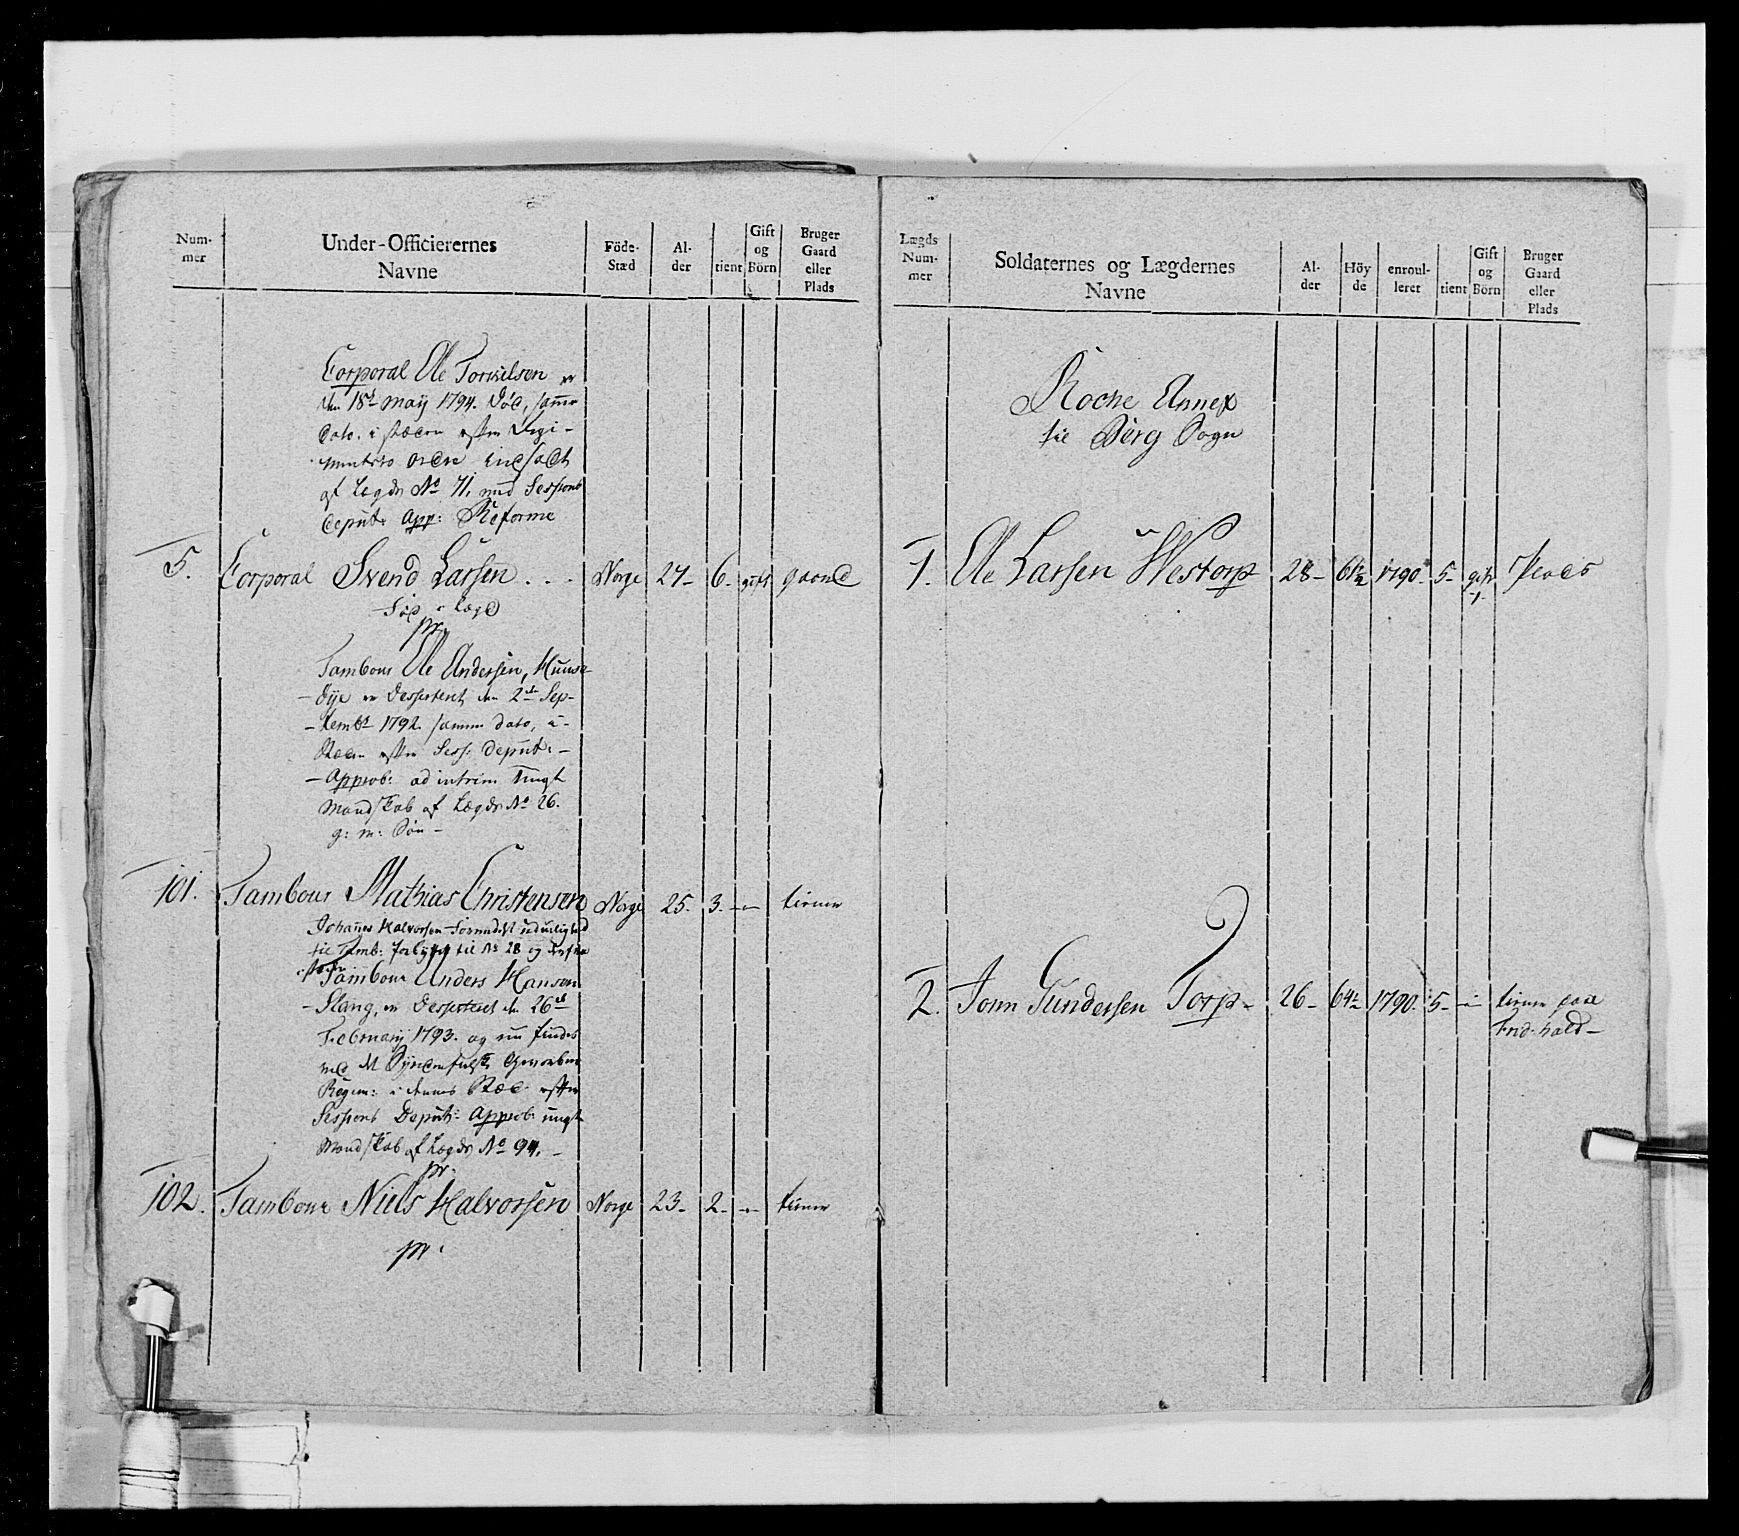 Num-
mer
Under-Officierernes
Navne
Föde-
Stæd
Al-
der
tient
Gift
og
Börn
Bruger
Gaard
eller
Plads
Corporal Ole Torkilsen er
den 18t May 1794. død, samme
Dato, i stæden efter Regi-
ments Ordre indsadt
af Legds No 71, med Sessions
Deput: App: Reforme
5. Corporal Svend Larsen . . . Norge 27- 6- gift gaard
i Lægd
pr.
Tambour Ole Andersen, Hunse-
Dÿe er Dessertert den 2de Sep-
tembr 1792. samme Dato, i-
Stæden efter Sess: Deput:-
Approb: ad intrim ungt
Mandskab af Lægds No 26.
g: m: Søn-
101. Tambour Mathias Christensen Norge 25. 3. -"- tiener
Johannes Halvorsen formedelst uduelighed
til Tamb: forbÿttet til No 28 og
Tambour Anders Hansen
Slang, er Dessertert den 26de
Februarÿ 1793. og nu findes
ved det Gevorbne
Regim: i dennes Stæd efter
Sessions Deput: Approb: ungt
Mandskab af Lægds No 94.-
pr.
102. Tambour Niels Halvorsen Norge 23- 2- -"- tiener
pr.
Lægds
Num-
mer
Soldaternes og Lægdernes
Navne
Al-
der
Höy
de
enroul-
leret
tient
Gift
og
Börn
Bruger
Gaard
eller
Plads
Rocke Annex
til Berg Sogn
1. Ole Larsen Westorp 28- 1790. 5- gift 1. Plads
2. Jonn Gundersen Torp- 26- 64½ 1790. 5- -"- tiener paa
Frid:hald-